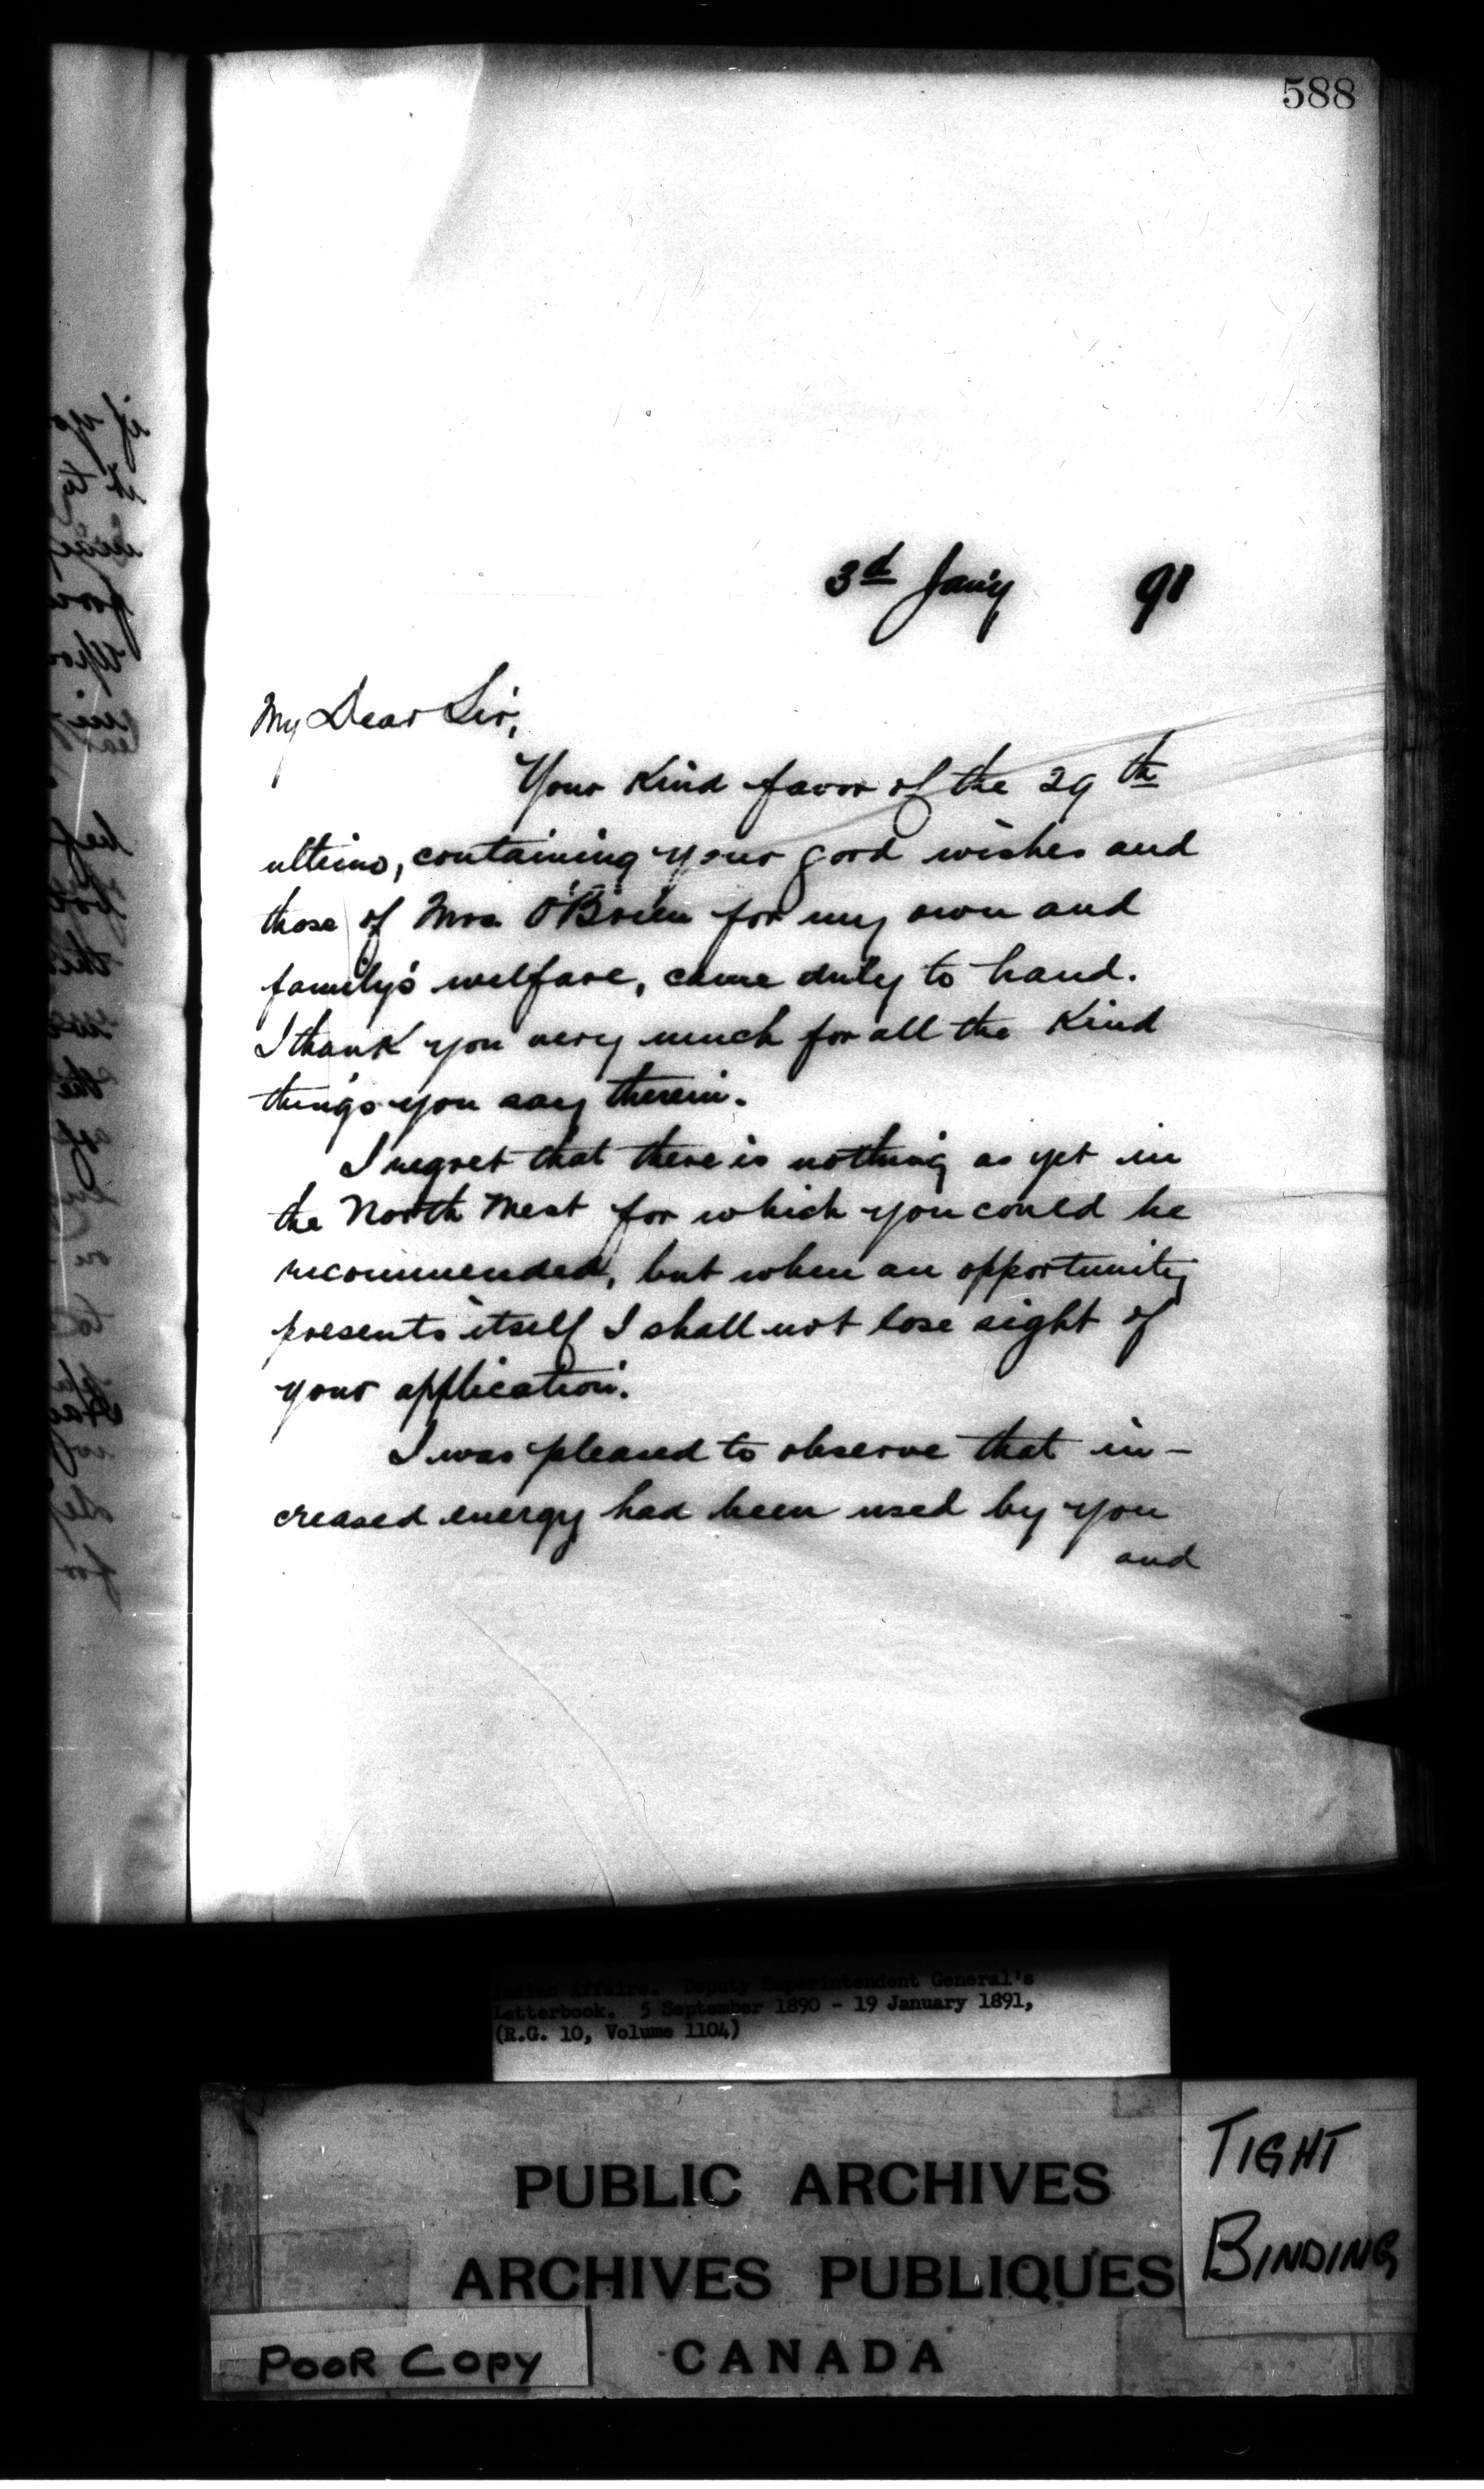 588
3d Jan'y 91
My Dear Sir,
Your Kind favor of the 29th
ultimo, containing your good wishes and
those of Mrs. O'Brien for my own and
family's welfare, came duly to hand.
I thank you very much for all the Kind
things you say therein.
I regret that there is nothing as yet in
the North West for which you could be
recommended, but when an opportunity
presents itself I shall not lose sight of
your application.
I was pleased to observe that in-
creased energy had been used by you
and
Indian Affairs. Deputy Superintendent General's
Letterbook. 5 September 1890 - 19 January 1891,
(R.G. 10, Volume 1104)
PUBLIC ARCHIVES
ARCHIVES PUBLIQUES
CANADA
TIGHT
BINDING
POOR COPY